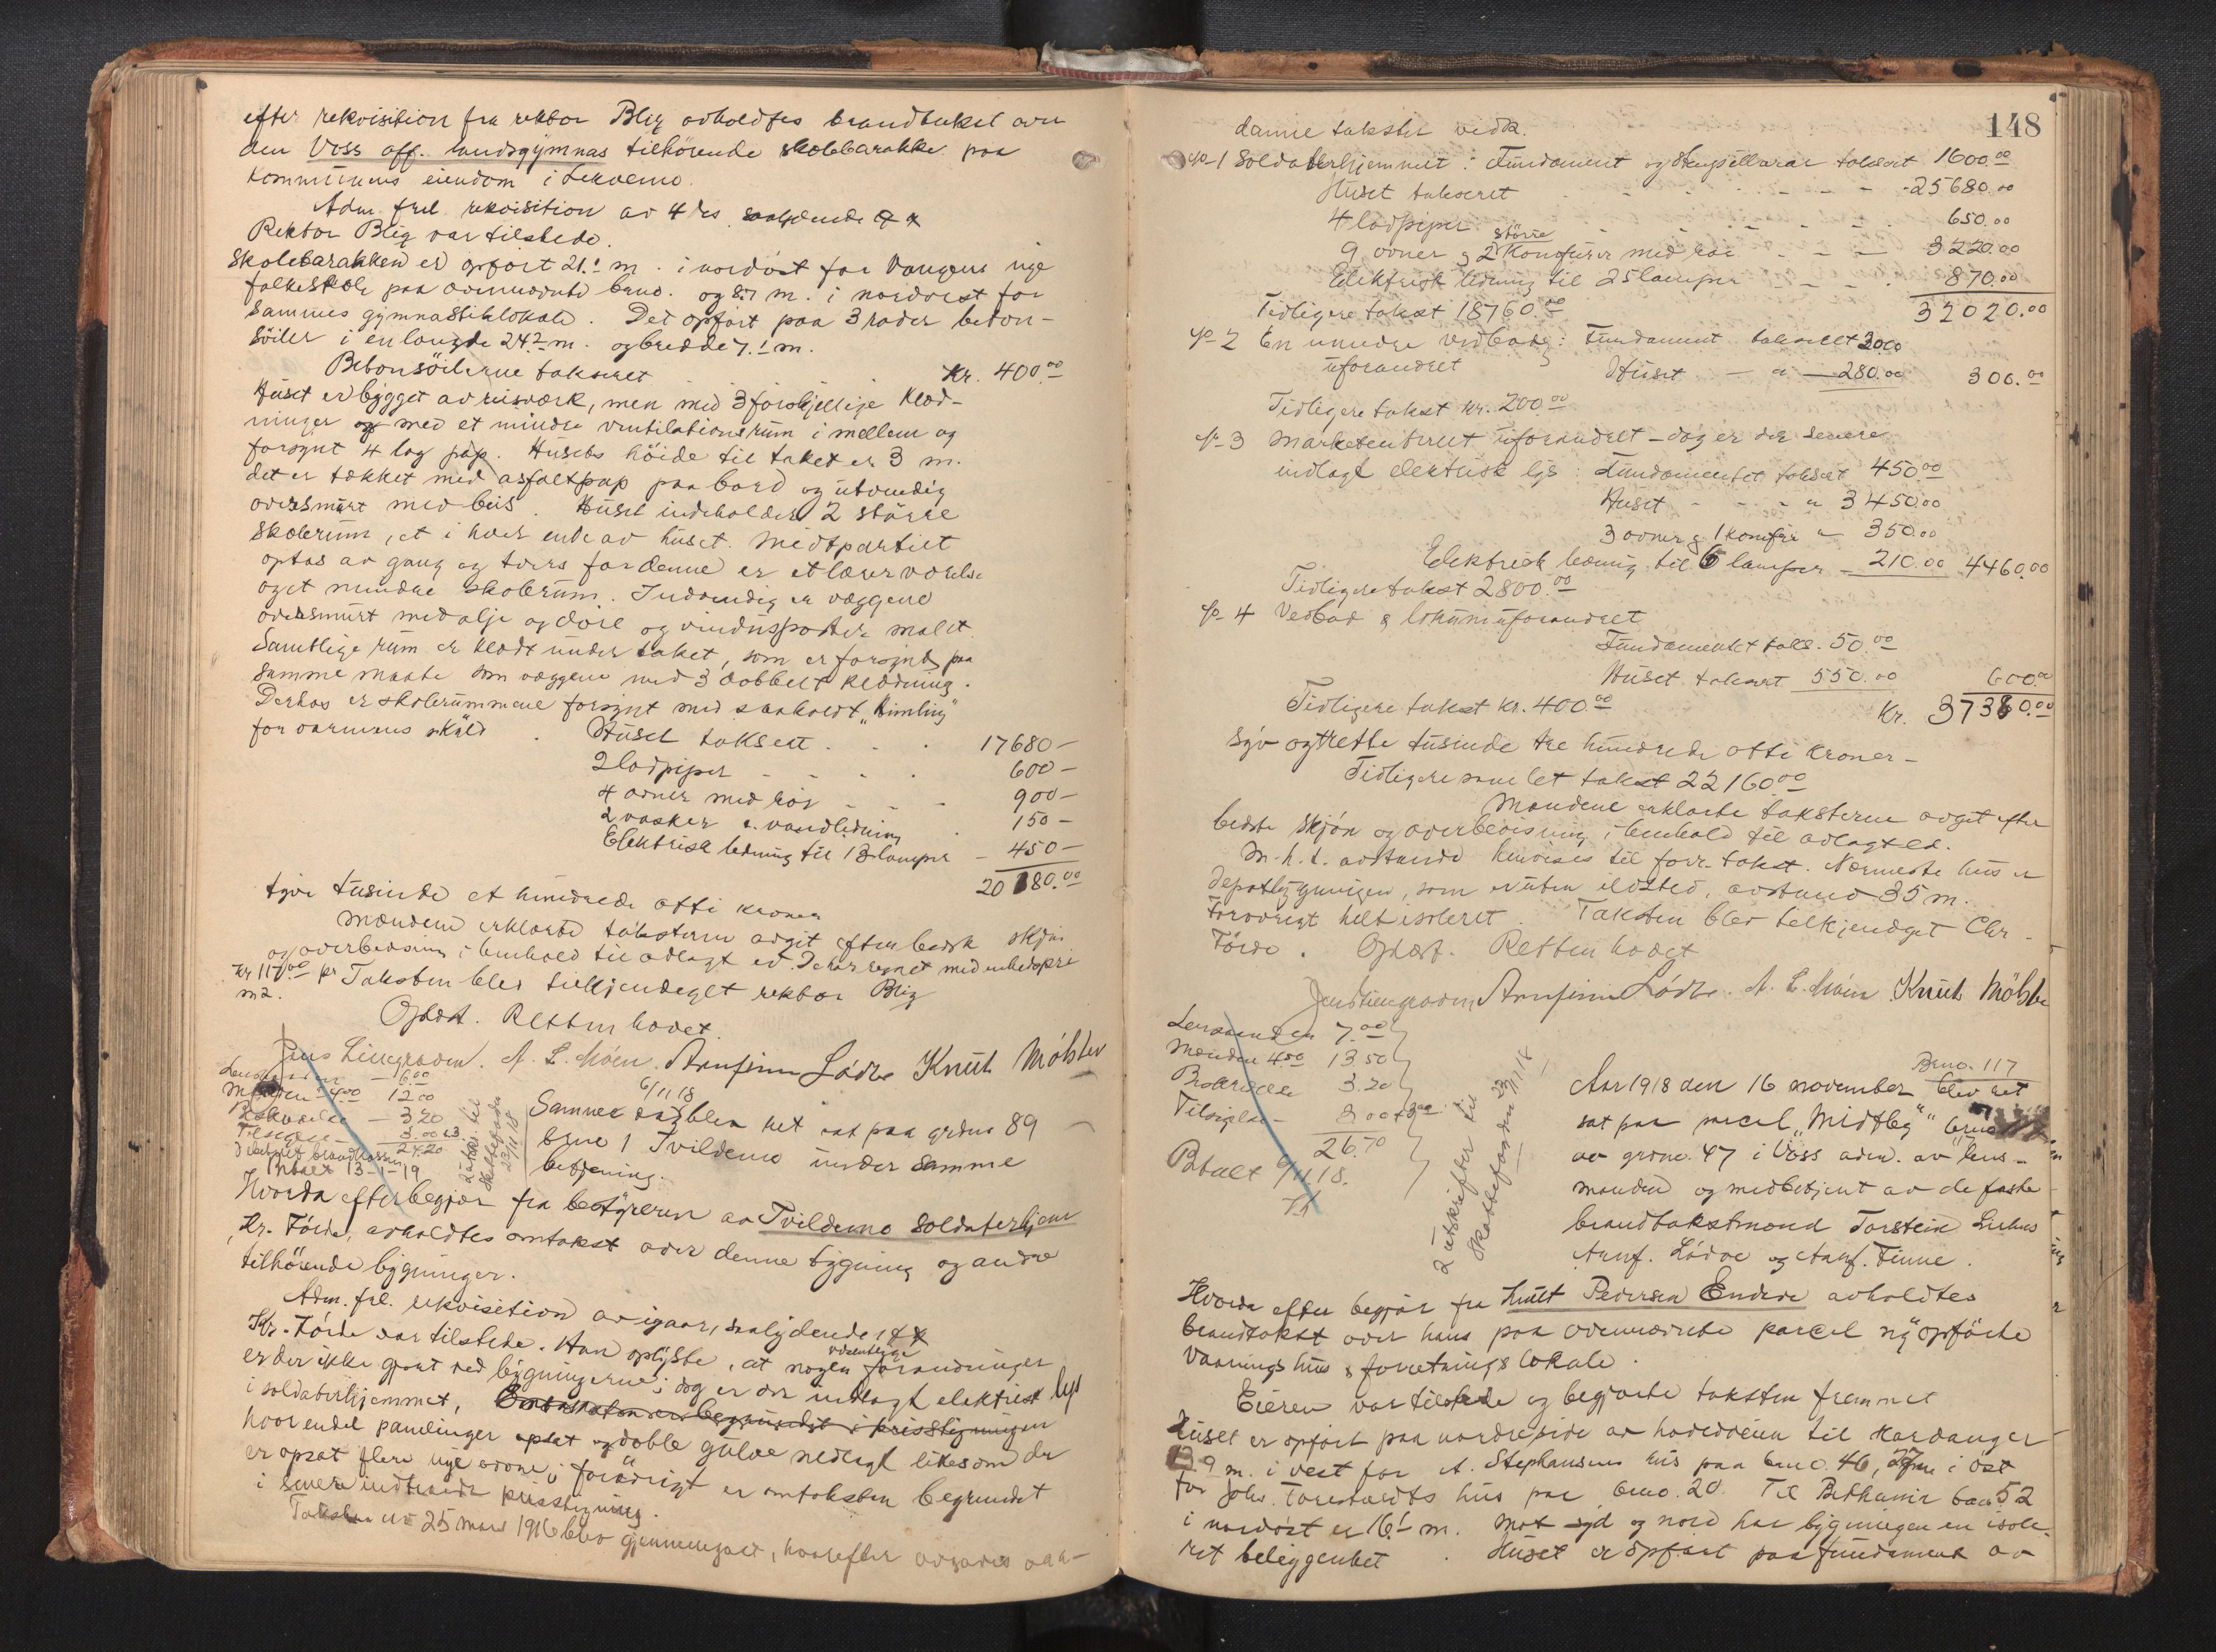 efter rekvisition fra rektor Blix avholdtes brandtakst over
den Voss off. landsgymnas tilhörende skolebarakke paa
kommunens eiendom i Lekvemo.
Adm. frel. rekvisition av 4 ds. saalydende
Rektor Blix var tilstede.
Skolebarakken er opført 21.1 m. i nordöst for Vangens nye
folkeskole paa ovennævnte bruno. og 8.7 m. i nordvest for
sammes gymnastiklokale. Det opført paa 3 rader beton-
söiler i en længde 24.2 m. og bredde 7.1 m.
Betonsöilerne takseret Kr. 400.00
Huset er bygget av reisværk, men med 3 forskjellige klæd-
ninger og med et mindre ventilationsrum i mellem og
forsynt 4 lag pap. Husets höide til taket er 3 m.
det er tækket med asfaltpap paa bord og utvendig
oversmurt med beis. Huset indeholder 2 större
skolerum, et i hver ende av huset. Midtpartiet
optas av gang og tvers for denne er et lærerværelse
og et mindre skolerum. Indvendig er væggene
oversmurt med olje og döre og vinduspöster malet.
Samtlige rum er klædt under taket, som er forsynt paa
samme maate som væggene med 3 dobbelt klædning.
Derhos er skolerummene forsynt med saakaldt "Himling"
for varmens skyld. Huset takseret 17680 -
2 lodpiper 600 -
4 ovner med rör 900 -
2 vasker & vandledning 150 -
Elektrisk ledning til 13 lamper - 450 -
20180.00
tyve tusinde et hundrede otti kroner
Mændene erklærte taksterne avgit efter bedste skjön
og overbevisning i henhold til avlagt ed. De har regnet med enhedspris
Kr 117.00 pr Taksten blev tilkjendegit rektor Blix
m2.
Oplæst. Retten hævet
Jens Lillegraven. A. L. Móen. Arnfinn Lódve Knut Mölster
Lensmanden - 6.00
Mænden 4.00 12.00
Bokværelse - 3.20
Tilsigelse 3.00
24.20
Betalt 13-1-19
2 utskr. til Skattefonden 23/11 18
6/11 18
Samme dag blev ret sat paa grdno 89
brno 1 Tvildemo under samme
betjening.
Hvorda efter begjær fra bestyreren av Tvildemo Soldaterhjem
Hr. Förde, avholdtes omtakst over denne bygning og andre
tilhörende bygninger.
Adm. frl. rekvisition av igaar, saalydende
Hr. Förde var tilstede. Han oplyste, at nogen væsentlige forandringer
er der ikke gjort ved bygningerne; dog er der indlagt elektrisk lys
i soldaterhjemmet, Omtaksten er begrundet i prisstigningen
hvor endel panelinger opsat og doble gulve nedlagt likesom der
er opsat flere nye ovne; forövrigt er omtaksten begrundet
i senere indtraadt prisstigning.
Taksten av 25 mars 1916 blev gjennemgaat, hvorefter avgaves saa-
148
danne takster vedk.
№ 1 Soldaterhjemmet: Fundament og Skupsellarar takseret 1600.00
Huset takseret - 25680.00
4 lodpiper 650.00
9 ovner & 2 större Komfurer med rör 3220.00
Elektrisk ledning til 25 lamper 870.00
Tidligere takst 18760.00 32020.00
№ 2 En mindre vedbod: Fundament takseret 20.00
uforandret Huset - " - 280.00 300.00
Tidligere takst Kr. 200.00
№ 3 Marketenteriet uforandret - dog er der senere
indlagt elektrisk lys: Fundamentet takseret 450.00
Huset - " 3450.00
3 ovner & 1 komfur " 350.00
Elektrisk ledning til 6 lamper - 210.00 4460.00
Tidligere takst 2800.00
№ 4 Vedbod & lokum uforandret
Fundamentet taks. 50.00
Huset takseret 550.00 600.00
Tidligere takst Kr. 400.00 Kr. 37380.00
syv og trette tusinde tre hundrede otti kroner -
Tidligere samlet takst 22160.00
Mændene erklærte taksterne avgit efter
bedste skjön og overbevisning i henhold til avlagt ed.
M. h. t. avstande henvises til forr. takst. Nærmeste hus er
depotbygningen, som er uten ildsted, avstand 35 m.
Forövrigt helt isoleret. Taksten blev tilkjendegit Chr.
Förde. Oplæst. Retten hævet
Jens Lillegraven, Arnfinn Lódve. A. L. Móen Knut Mölster
Lensmanden 7.00
Mænden 4.50 13.50
Bokværelse 3.20
Tilsigelse - 3.00
26.70
Betalt 6/11 18.
2 utskrifter til Skattefonden 23/11 18
Brno. 117
Aar 1918 den 16 november blev ret
sat paa parcel "Midtbg" brno
av grdno. 47 i Voss adm. av lens-
manden og medbetjent av de faste
brandtakstmænd Torstein Lirhus
Arnf. Lódve og Arnf. Finne.
Hvorda efter begjær fra Knut Pedersen Endeve avholdtes
brandtakst over hans paa ovennævnte parcel nyopförte
vaaningshus & forretningslokale.
Eieren var tilstede og begjærte taksten fremmet
Huset er opfört paa nordre side av hovedveien til Hardanger
9 m. i vest for A. Stephansens hus paa brno. 46, 27 m i öst
for Johs. Torestveits hus paa brno. 20. Til Bethania brno 52
i nordöst er 16.1 m. Mot syd og nord har bygningen en isole-
ret beliggenhet. Huset er opfört paa fundament av